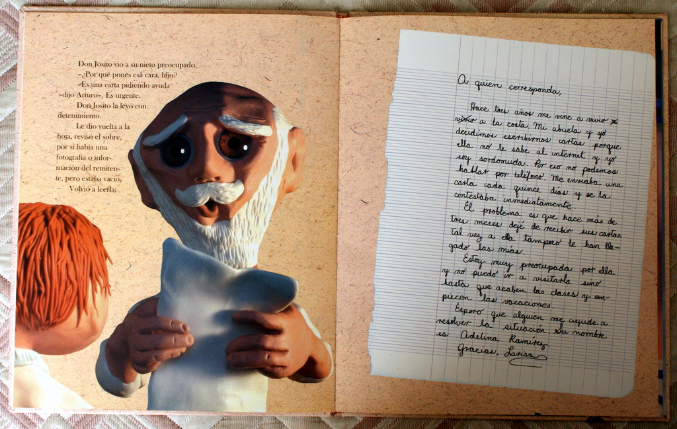 Don Josito vio a su nieto preocupado.
-¿Por qué pones esa cara, hijo?
-Es una carta pidiendo ayuda
-dijo Arturo-. Es urgente.
Don Josito la leyó con
detenimiento.
Le dio vuelta a la
hoja, revisó el sobre,
por si había una
fotografía o infor-
mación del remiten-
te, pero estaba vacío.
Volvió a leerla:
A quien corresponda:
Hace tres años me vine a vivir
a la costa. Mi abuela y yo
decidimos escribirnos cartas porque
ella no le sabe al internet y yo
soy sordomuda. Por eso no podemos
hablar por teléfono. Me enviaba una
carta cada quince días y se la
contestaba inmediatamente.
El problema es que hace más de
tres meses dejé de recibir sus cartas
tal vez a ella tampoco le han lle-
gado las mías.
Estoy muy preocupada por ella
y no puedo ir a visitarla sino
hasta que acaben las clases y em-
piecen las vacaciones.
Espero que alguien me ayude a
resolver la situación su nombre
es Adelina Ramírez
Gracias, Larisa